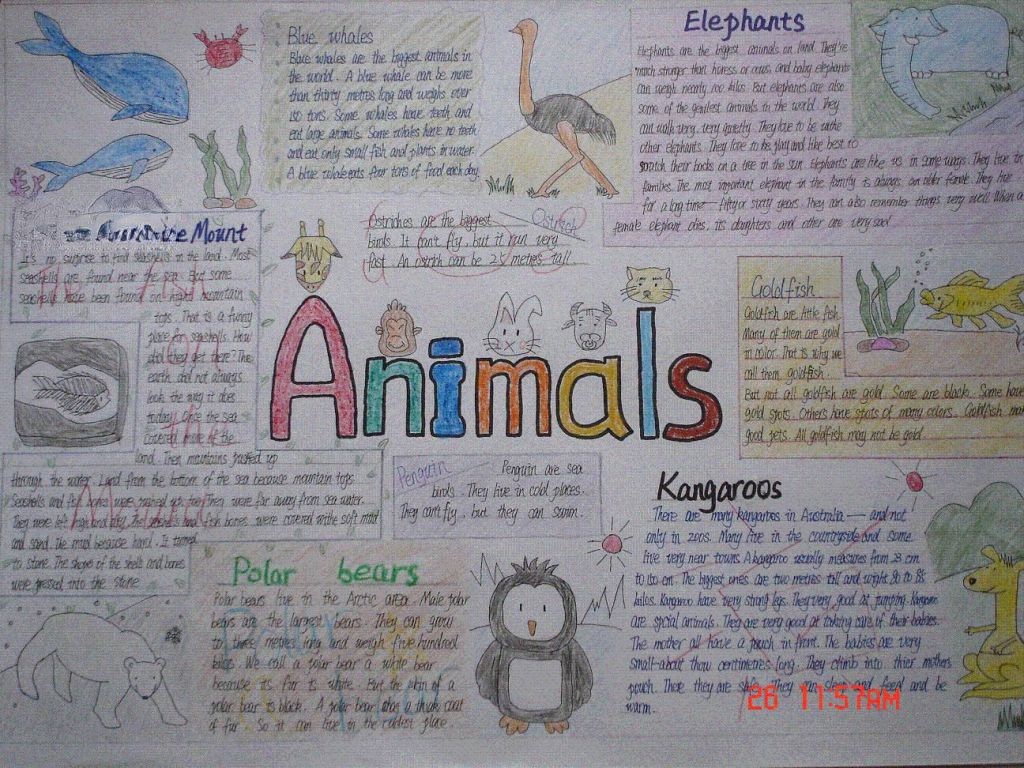 Blue whales
Blue whales are the biggest animals in
the world. A blue whale can be more
than thirty metres long and weighs over
150 tons. Some whales have teeth and
eat large animals. Some whales have no teeth
and eat only small fish and plants in water.
A blue whale eats four tons of food each day.
Elephants
Elephants are the biggest animals on land. They're
much stronger than horess or cows, and baby elephants
can weigh nearly 100 kilos. But elephants are also
some of the gentlest animals in the world. They
can walk very, very quietly. They love to be withe
other elephants. They love to be play and like best to
scratch their backs on a tree in the sun. Elephants are like us in some ways. They live in
families. The most important elephant in the family is always an older female. They live
for a long time — fifty or sixty years. They can also remember things very well. When a
female elephant dies, its daughters and other are very sad
Ostrich
Ostriches are the biggest
birds. It can't fly, but it run very
fast. An ostrich can be 2.5 metres tall.
Mount
It's no surprise to find seashells in the land. Most
seashells are found near the sea. But some
seashells have been found on highd mountain
tots. That is a funny
place for seashells. How
did they get there? The
earth did not always
look the way it does
today. Once the sea
covered more of the
land. Then mountains pushed up
through the water. Land from the bottom of the sea because mountain tops.
Seashells and fish bones were pushed up too. Then were far away from sea water.
They were left high and dry. The seashells and fish bones were covered withe soft mud
and sand. The mud because hard. It turned
to stone. The shapes of the shells and bones
were pressed into the stone
Animals
Goldfish
Goldfish are little fish.
Many of them are gold
in color. That is why we
call them goldfish.
But not all goldfish are gold. Some are black. Some have
gold spots. Others have spots of many colors. Goldfish mak
good pets. All goldfish may not be gold.
Penguin
Penguin are sea
birds. They live in cold places.
They can't fly, but they can swim.
Polar bears
Polar bears live in the Arctic area. Male polar
bears are the largest bears. They can grow
to three metres long and weigh five hundred
kilos. We call a polar bear a white bear
because its fur is white. But the skin of a
polar bear is black. A polar bear has a thick coat
of fur. So it can live in the coldest place.
Kangaroos
There are many kangaroos in Australia — and not
only in zoos. Many live in the countryside and some
live very near towns. A kangaroo usually measures from 23 cm
to 150 cm. The biggest ones are two metres tall and wight 80 to 85
kilos. Kangaroo have very strong legs. They very good at jumping. Kangaroo
are spcial animals. They are very good at taking care of their babies.
The mother all have a pouch in front. The babies are very
small-about thow centimetres long. They climb into thier mothers
pouch. There they are safe. They can sleep and feed and be
warm.
26 11:57AM